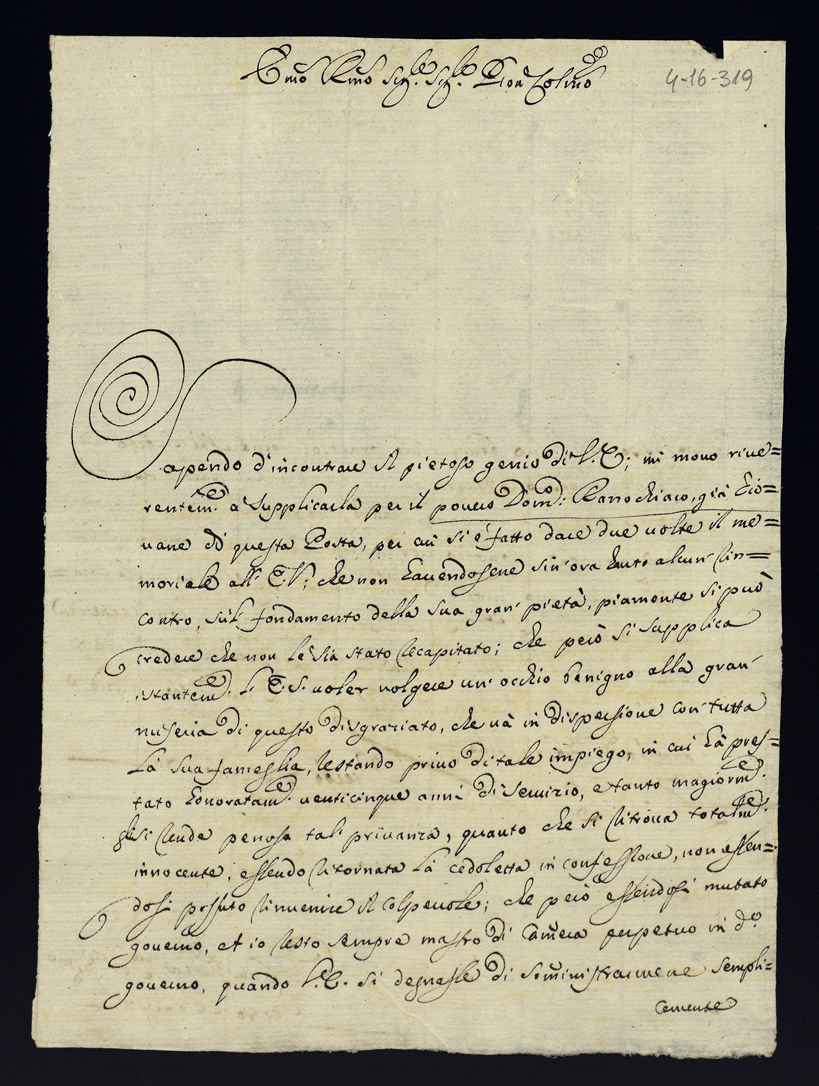 Em͞o Rm͞o Sig.re Sig.re Pron Colmo
4-16-319
Sapendo d'incontrare il pietoso genio di V.E; mi movo rive=
rentem.e a supplicarla per il povero Dom.co Parrochiaro, già Gio=
vane di questa Posta, per cui si è fatto dare due volte il me=
moriale all' E.V; che non havendosene sin'ora hauto alcun' rin=
contro, sùl fondamento della sua gran' pietà, piamente si può
credere che non le sia stato recapitato; che però si supplica
istantem.e l' E.S. voler volgere un' occhio benigno alla gran'
miseria di questo disgraziato, che và in dispersione con tutta
la sua fameglia, restando privo di tale impiego, in cui hà pres=
tato honoratam.e venticinque anni di servizio, e tanto magiorm.e
gli si rende penosa tal' privanza, quanto che si ritrova totalm.e
innocente, essendo ritornata la cedoletta in confessione, non essen=
dosi possuto rinvenire il colpevole; che però essendosi mutato
governo, et io resto sempre mastro di Camera perpetuo in d.o
governo, quando V.E. si degnasse di somministrarmene sempli=
cemente